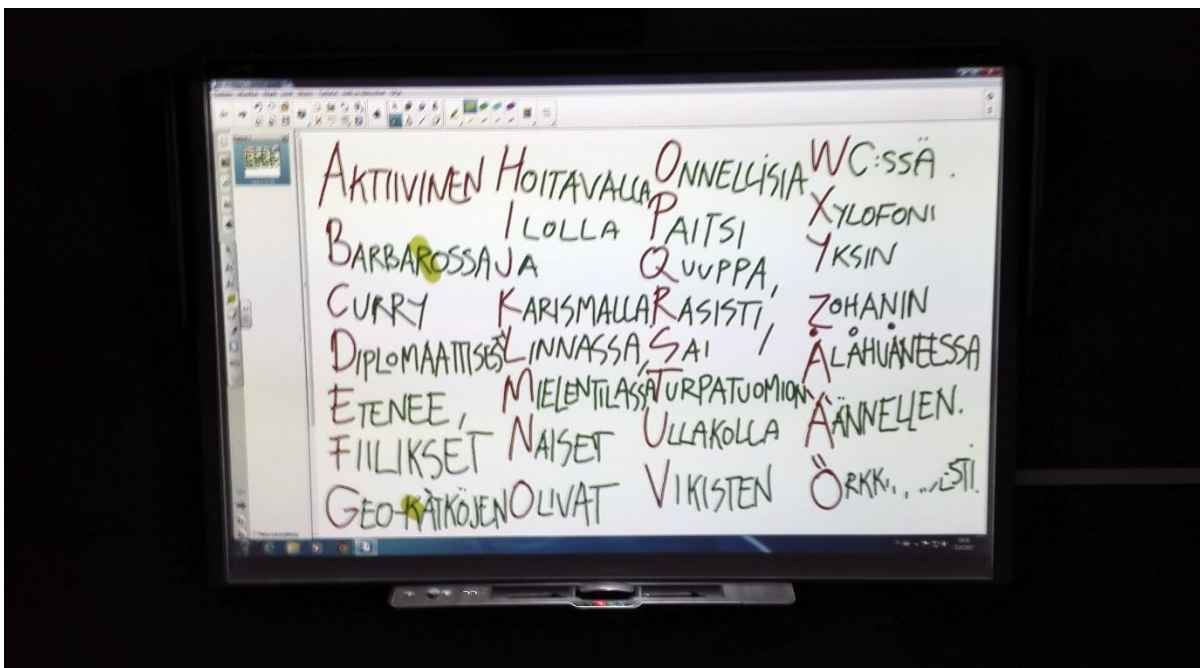 AKTIIVINEN
BARBAROSSA
CURRY
DIPLOMAATTISESTI
ETENEE,
FIILIKSET
GEO-KÄTKÖJEN
HOITAVALLA
ILOLLA
JA
KARISMALLA
LINNASSA,
MIELENTILASSA
NAISET
OLIVAT
ONNELLISIA
PAITSI
QUUPPA,
RASISTI,
SAI
TURPATUOMION
ULLAKOLLA
VIKISTEN
WC:SSÄ.
XYLOFONI
YKSIN
ZOHANIN
ÅLÅHUÅNEESSA
ÄÄNNELLEN.